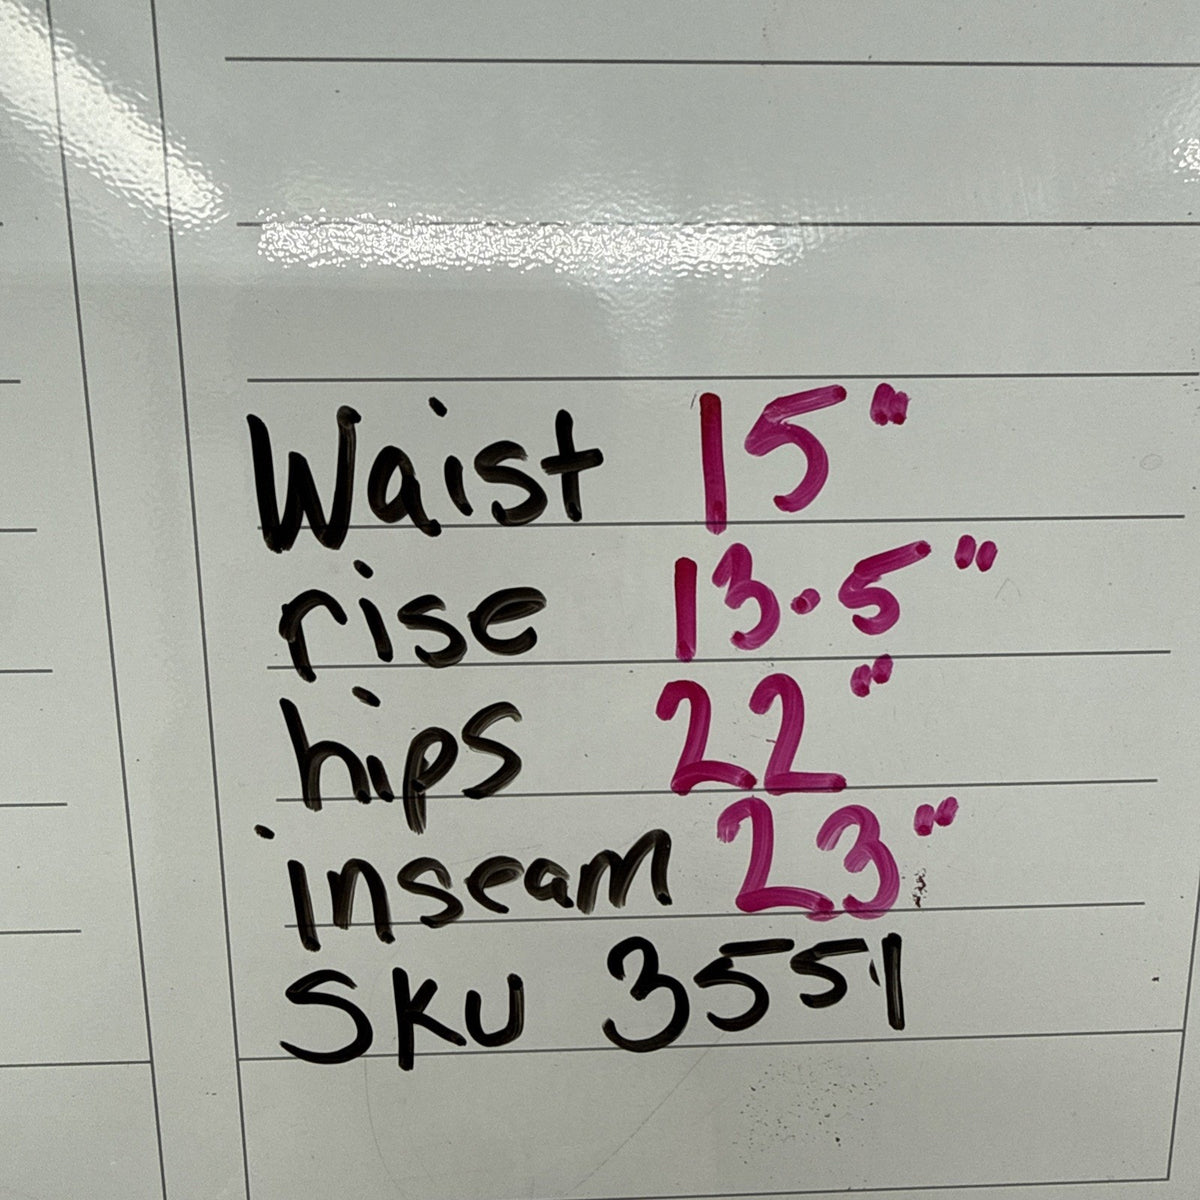 Waist 15"
rise 13.5"
hips 22"
inseam 23"
SKU 3551